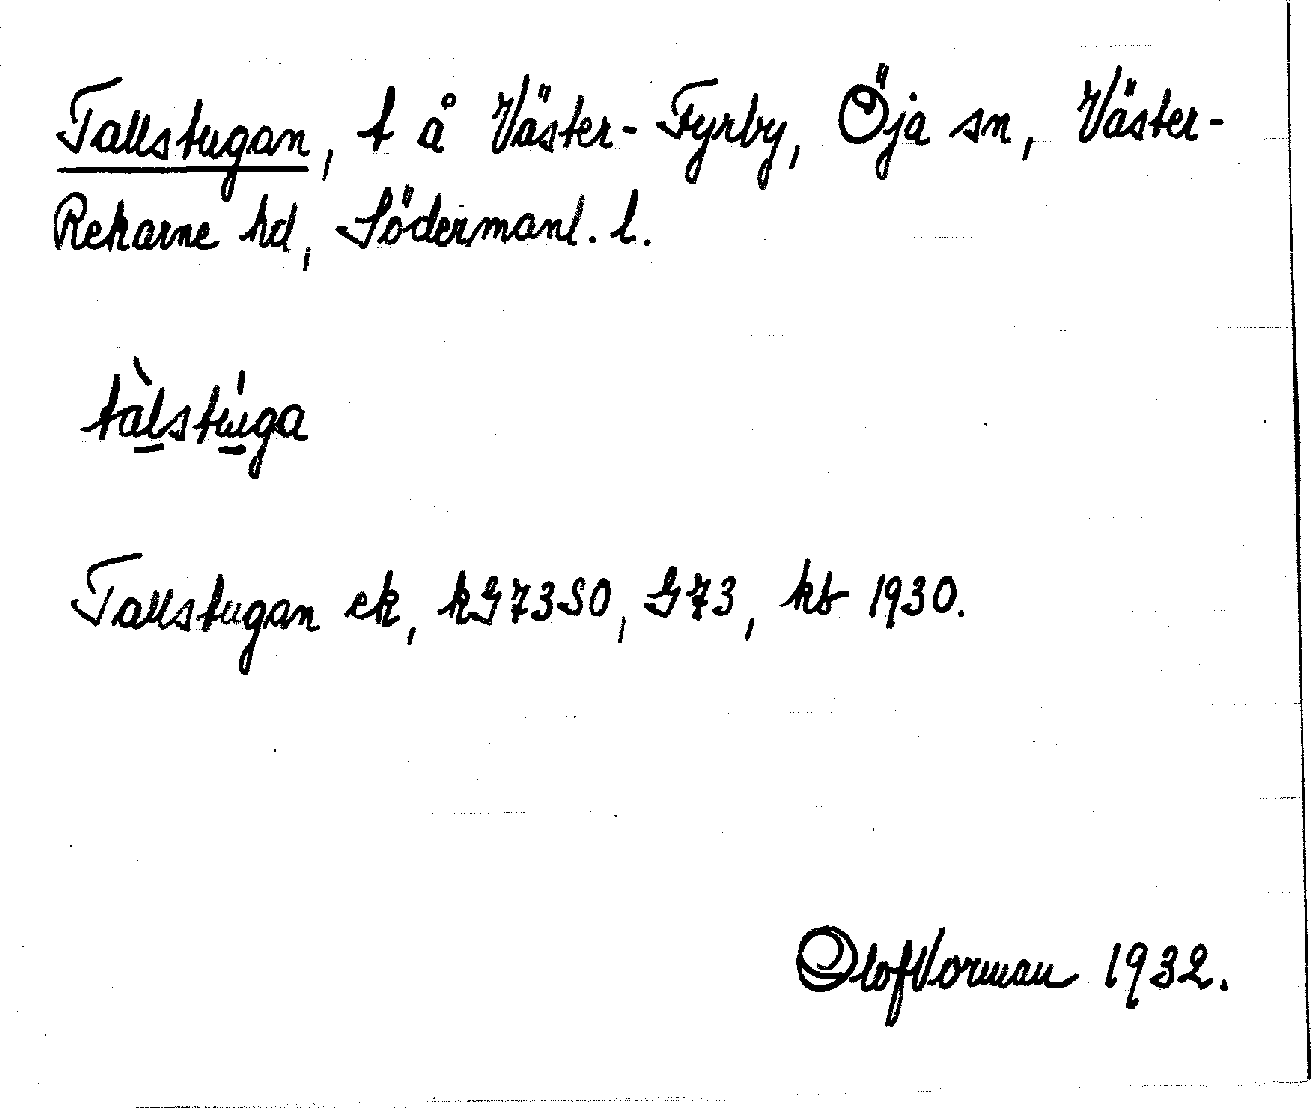 Tallstugan, t å Väster-Fyrby, Öja sn, Väster-
Rekarne hd, Södermanl. l.
tàlstu̍ga
Tallstugan ek, kG73SO, G73, kb 1930.
Olof Vorman 1932.